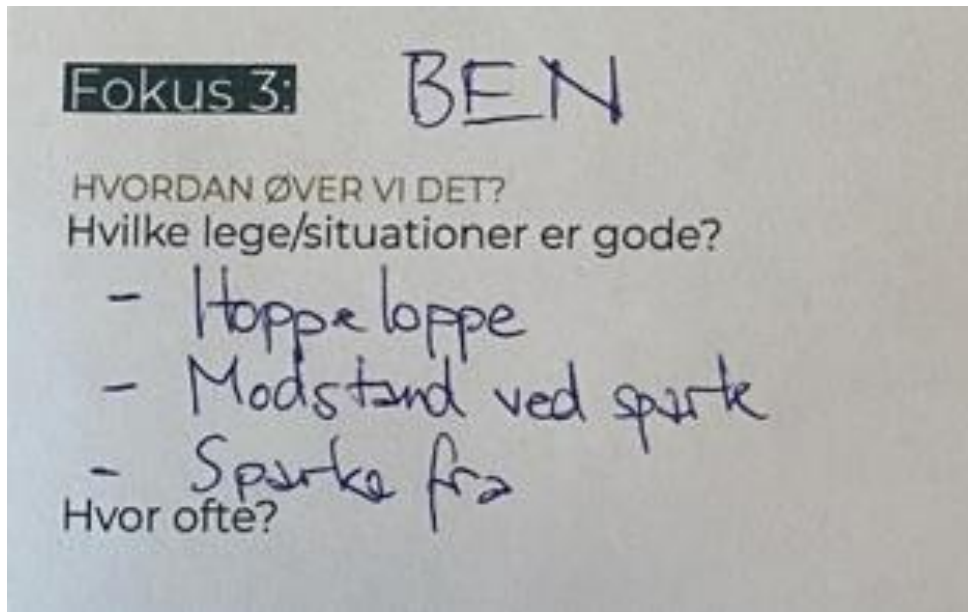 Fokus 3: BEN
HVORDAN ØVER VI DET?
Hvilke lege/situationer er gode?
- Hoppe loppe
- Modstand ved spark
- Sparke fra
Hvor ofte?